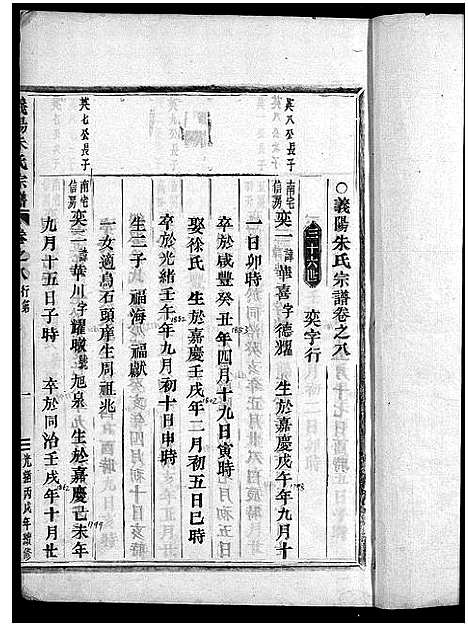 ○義陽朱氏宗譜卷之八
三十世 奕字行
英八公長子
南宅信房 奕一 諱華喜字德燿 生於嘉慶戊午年九月十
1798
一日卯時
卒於咸豐癸丑年四月十九日寅時
1853
娶徐氏 生於嘉慶壬戌年二月初五日巳時
1802
卒於光緒壬午年九月初十日申時
1882
生二子 福海 福獻
一女適烏石頭庠生周祖兆
英七公長子
南宅信房 奕二 諱華川字耀墩號旭泉 生於嘉慶己未年
1799
九月十五日子時 卒於同治壬戌年十月廿
1862
義陽朱氏宗譜 卷之八 行第 一 光緒丙戌年續修